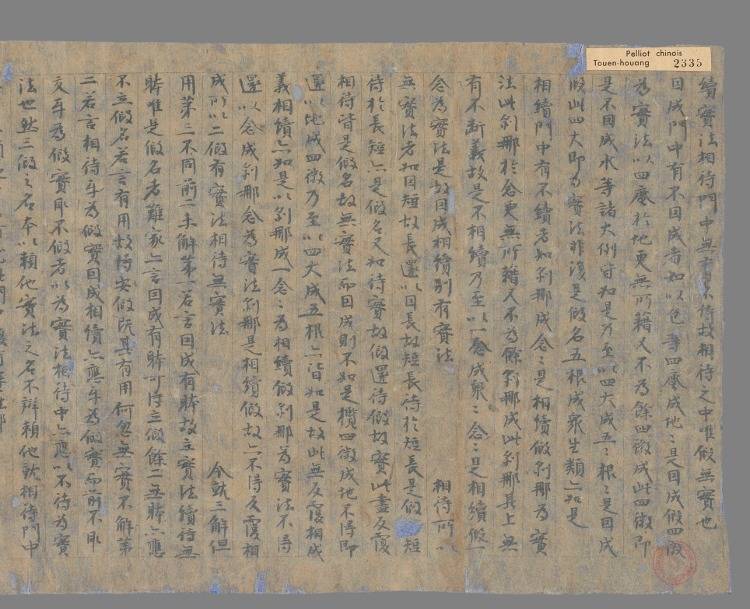 Pelliot chinois
Touen-houang 2335
續實法相待門中無有不待故相待之中唯假無實也
因成門中有不因成者如以色等四塵成地〻是因成假四微
為實法以四塵於地更無所藉又不為餘四微成此四微即
是不因成水等諸大例皆如是乃至以四大成五〻根〻是因成
假此四大即為實法非復是假名五根成衆生類亦如是
相續門中有不續者如剎那成念〻是相續假剎那為實
法此剎那於念更無所藉又不為餘剎那成此剎那其上無
有不斷義故是不相續乃至以一念成衆〻念〻是相續假一
念為實法是故因成相續別有實法 相待所以
無實法者如因短故長還以因長故短長待於短長是假短
待於長短亦是假名又如待實故假還待假故實此盡反覆
相待皆是假名故無實法而因成則不如是攬四微成地不得即
還以地成四微乃至以四大成五根亦皆如是故此無反覆相成
義相續亦如是以剎那成一念〻為相續假剎那為實法不得
還以念成剎那念為實法剎那是相續假故亦不得反覆相
成所以二假有實法相待無實法 今就三解但
用第三不同前二未解第一若言因成有體故立實法續待無
體唯是假名者難家亦言因成有體可得立假餘二無體亦應
不立假名若言有用故得安假既具有用何忽無實不解第
二若言相待牽為假實因成相續亦應牽為假實而前不取
交牽為假實取不假者以為實法相待中亦應以不待為實
法也然三假之名本以賴他實法之名不辯賴他就相待門中